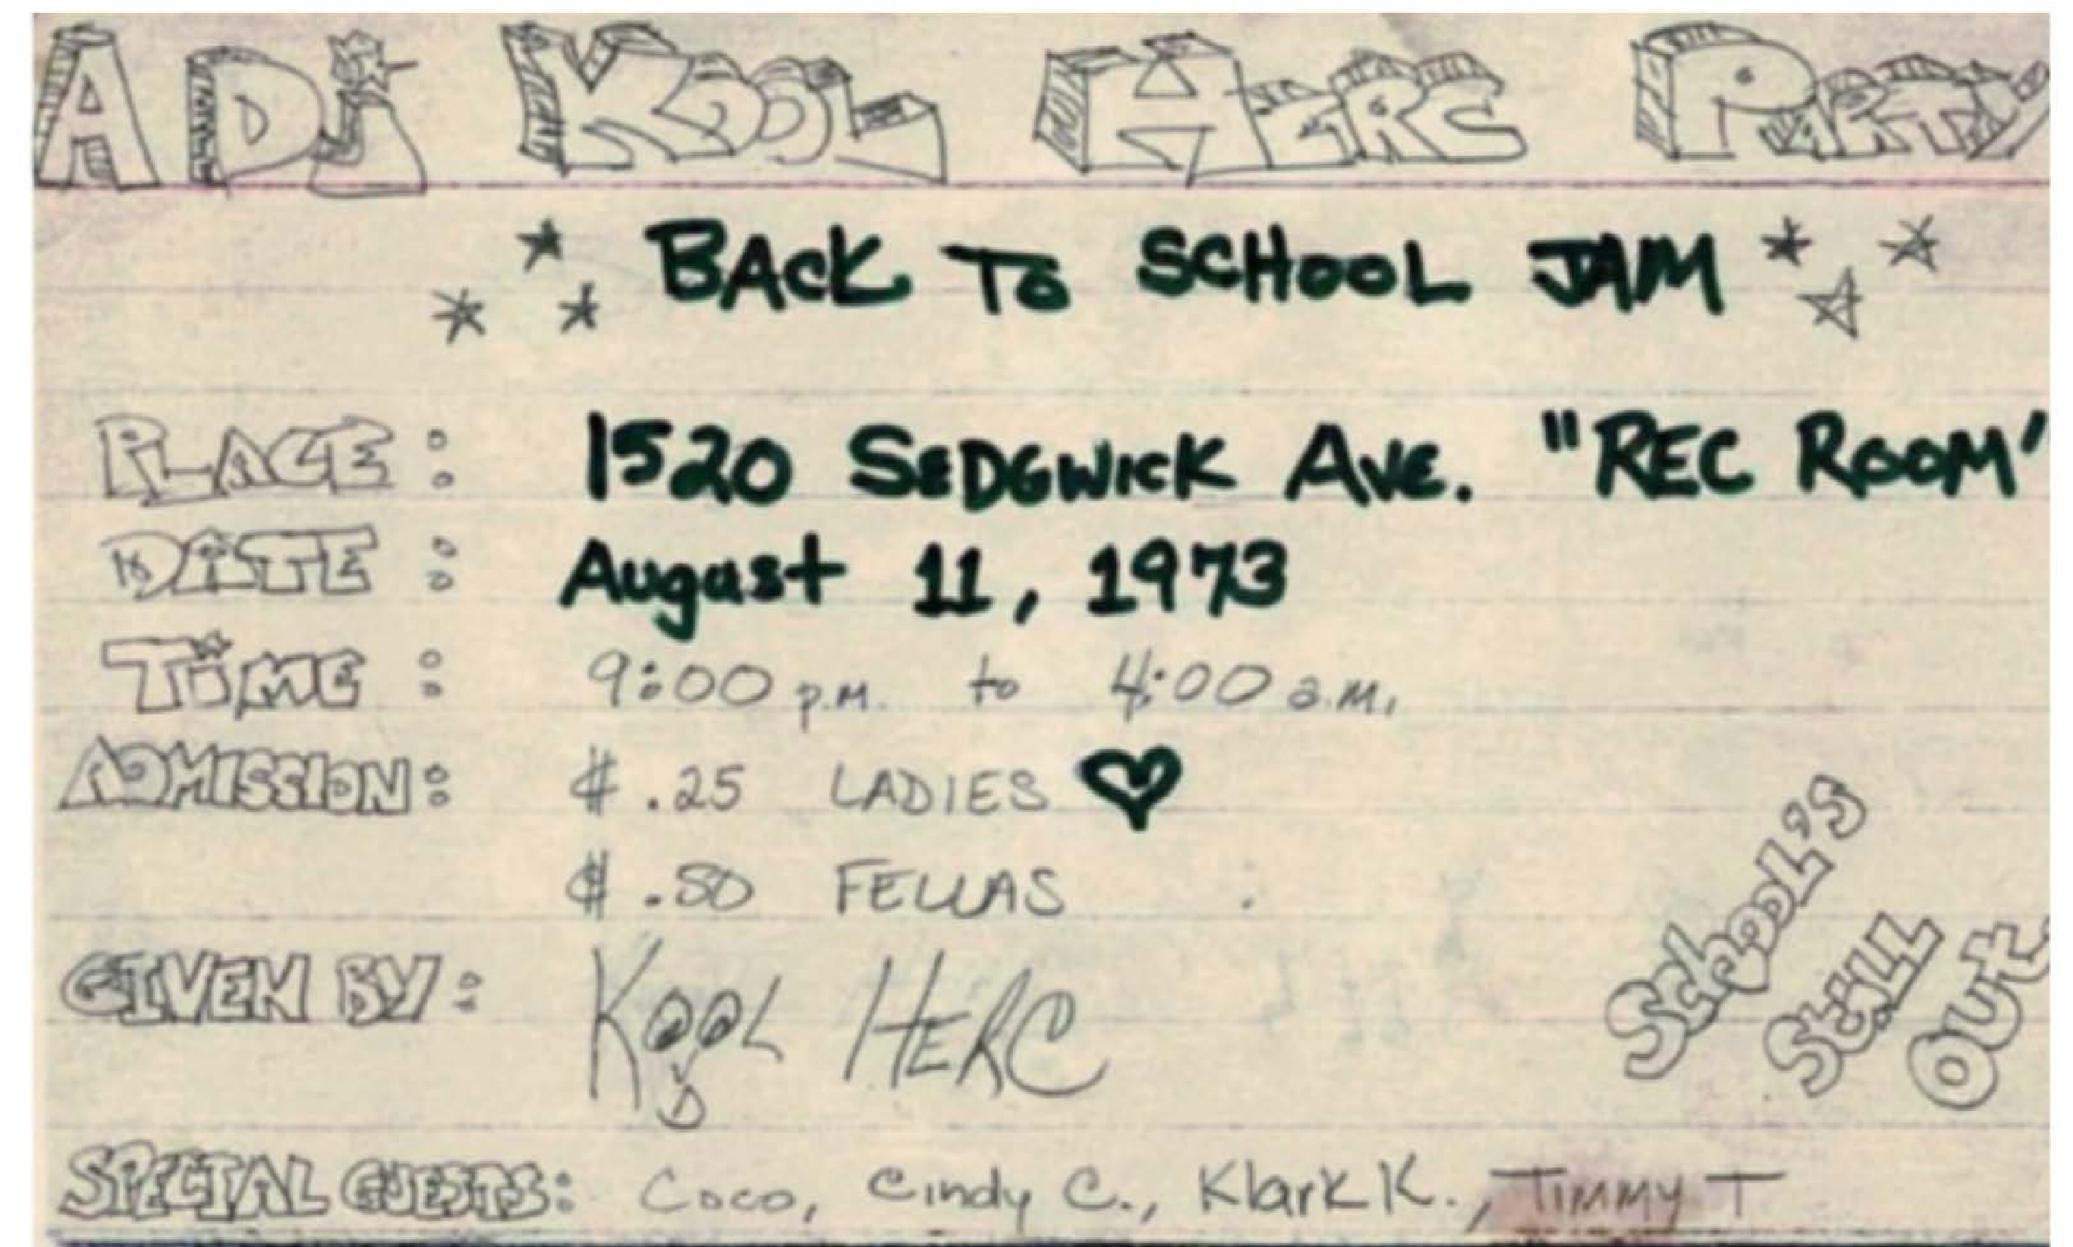 A DJ KOOL HERC PARTY
BACK TO SCHOOL JAM
PLACE: 1520 SEDGWICK AVE. "REC ROOM"
DATE: August 11, 1973
TIME: 9:00 p.m. to 4:00 a.m.
ADMISSION: $.25 LADIES
$.50 FELLAS
GIVEN BY: KOOL HERC
SCHOOL'S
STILL
OUT
SPECIAL GUESTS: Coco, Cindy C., Klark K., TIMMY T